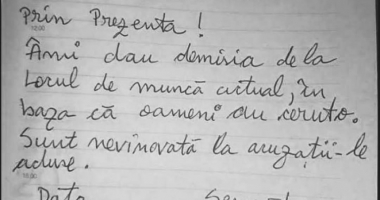 Prin Prezenta !
Âmi dau demisia de la
Locul de muncă actual, în
baza că oameni au ceruto.
Sunt nevinovată la acuzații-le
aduse.
Data